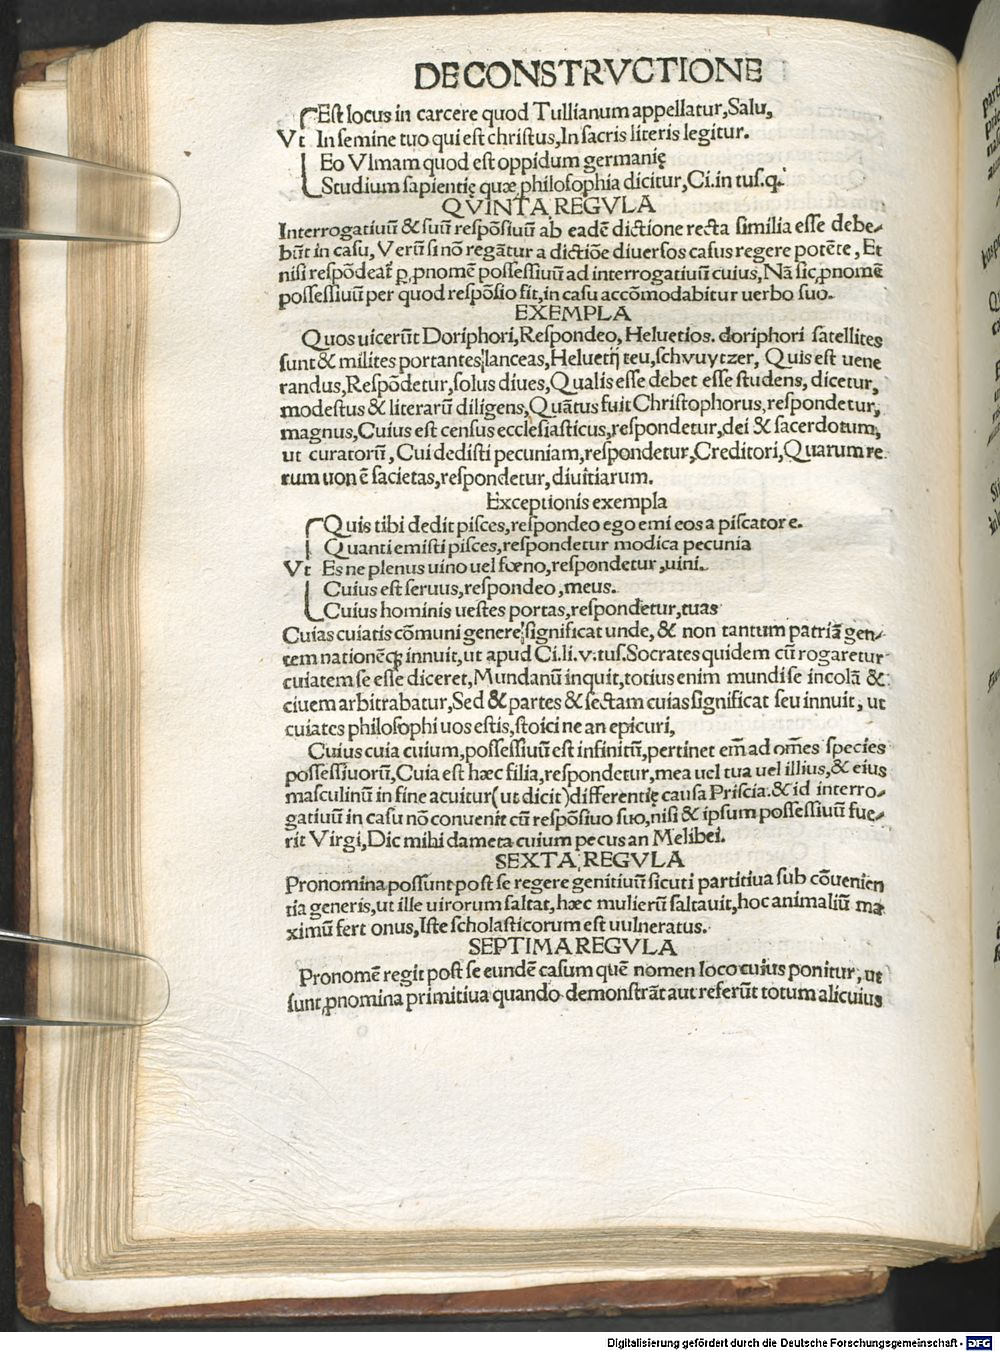 DE CONSTRVCTIONE
Est locus in carcere quod Tullianum appellatur, Salu,
Vt In semine tuo qui est christus, In sacris literis legitur.
Eo Vlmam quod est oppidum germanię
Studium sapientię quæ philosophia dicitur, Ci. in tus. q.
QVINTA REGVLA
Interrogatiuū & suū respōsiuū ab eadē dictione recta similia esse debe-
būt in casu, Verū si nō regātur a dictiōe diuersos casus regere potēte, Et
nisi respōdeat̄ ꝑ ꝓnomē possessiuū ad interrogatiuū cuius, Nā sic ꝓnomē
possessiuū per quod respōsio fit, in casu accōmodabitur uerbo suo.
EXEMPLA
Quos uicerūt Doriphori, Respondeo, Heluetios. doriphori satellites
sunt & milites portantes lanceas, Heluetij teu, schvuytzer, Quis est uene
randus, Respōdetur, solus diues, Qualis esse debet esse studens, dicetur,
modestus & literarū diligens, Quātus fuit Christophorus, respondetur,
magnus, Cuius est census ecclesiasticus, respondetur, dei & sacerdotum,
ut curatorū, Cui dedisti pecuniam, respondetur, Creditori, Quarum re
rum uon ē sacietas, respondetur, diuitiarum.
Exceptionis exempla
Quis tibi dedit pisces, respondeo ego emi eos a piscatore.
Quanti emisti pisces, respondetur modica pecunia
Vt Es ne plenus uino uel fœno, respondetur, uini.
Cuius est seruus, respondeo, meus.
Cuius hominis uestes portas, respondetur, tuas
Cuias cuiatis cōmuni genere significat unde, & non tantum patriā gen-
tem nationēq; innuit, ut apud Ci. li. v. tus. Socrates quidem cū rogaretur
cuiatem se esse diceret, Mundanū inquit, totius enim mundi se incolā &
ciuem arbitrabatur, Sed & partes & sectam cuias significat seu innuit, ut
cuiates philosophi uos estis, stoici ne an epicuri,
Cuius cuia cuium, possessiuū est infinitū, pertinet em̄ ad om̄es species
possessiuorū, Cuia est hæc filia, respondetur, mea uel tua uel illius, & eius
masculinū in fine acuitur (ut dicit) differentię causa Priscia. & id interro-
gatiuū in casu nō conuenit cū respōsiuo suo, nisi & ipsum possessiuū fue-
rit Virgi, Dic mihi dameta cuium pecus an Melibei.
SEXTA REGVLA
Pronomina possunt post se regere genitiuū sicuti partitiua sub cōuenien
tia generis, ut ille uirorum saltat, hæc mulierū saltauit, hoc animaliū ma
ximū fert onus, Iste scholasticorum est uulneratus.
SEPTIMA REGVLA
Pronomē regit post se eundē casum quē nomen loco cuius ponitur, ut
sunt ꝓnomina primitiua quando demonstrāt aut referūt totum alicuius
Digitalisierung gefördert durch die Deutsche Forschungsgemeinschaft - DFG